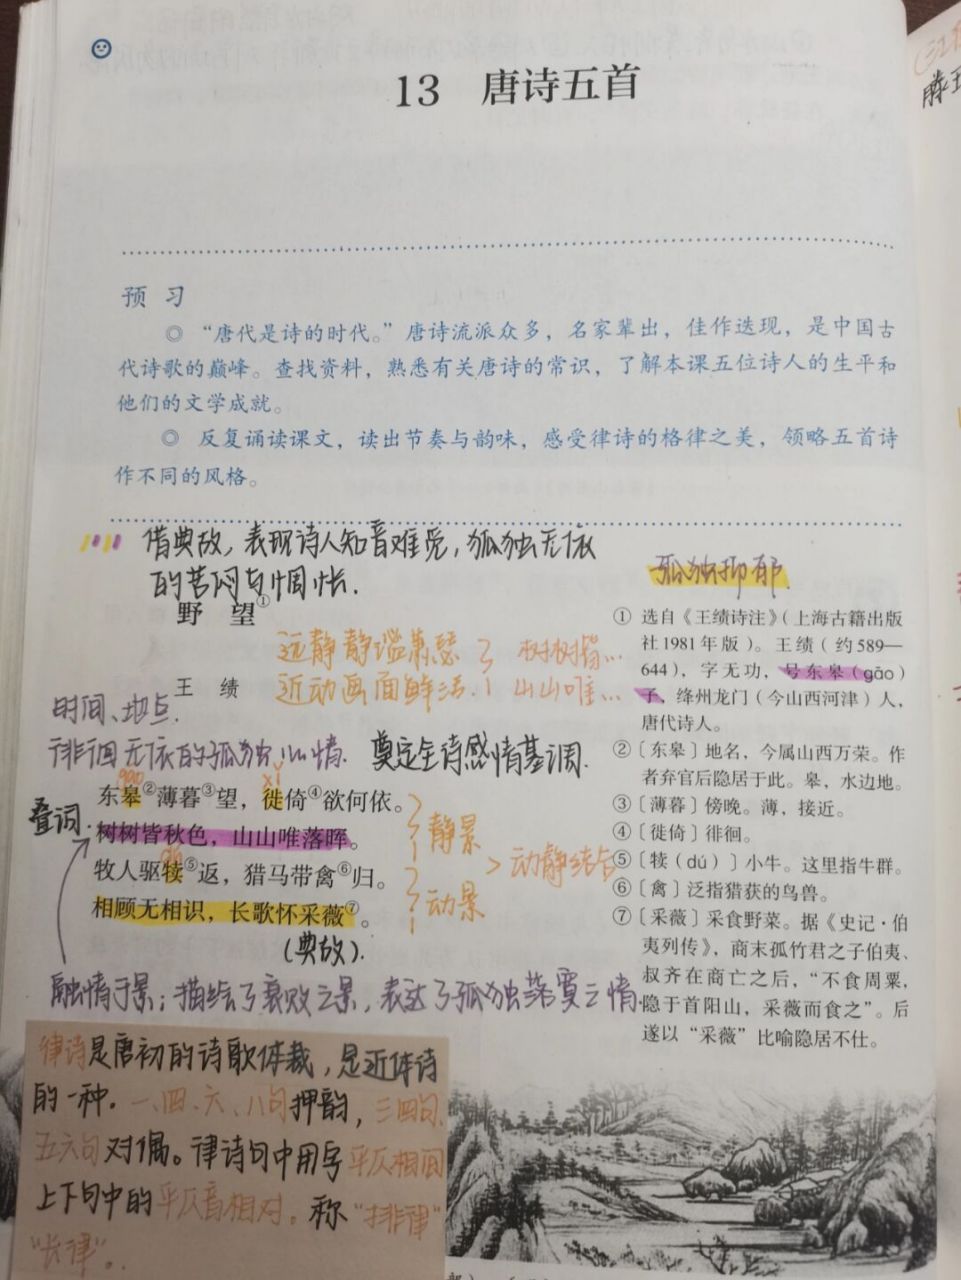 13 唐诗五首
预 习
◎ “唐代是诗的时代。”唐诗流派众多，名家辈出，佳作迭现，是中国古
代诗歌的巅峰。查找资料，熟悉有关唐诗的常识，了解本课五位诗人的生平和
他们的文学成就。
◎ 反复诵读课文，读出节奏与韵味，感受律诗的格律之美，领略五首诗
作不同的风格。
借典故，表现诗人知音难觅，孤独无依
的苦闷与惆怅．
孤独抑郁．
野 望①
远静 静谧萧瑟 树树皆…
近动 画面鲜活 山山唯…
王 绩
时间、地点．
徘徊无依的孤独心情． 奠定全诗感情基调．
gāo xǐ
东皋②薄暮③望，徙倚④欲何依。
叠词．
树树皆秋色，山山唯落晖。
静景
动静结合
dú
牧人驱犊⑤返，猎马带禽⑥归。
动景
相顾无相识，长歌怀采薇⑦。
（典故）．
融情于景；描绘了衰败之景，表达了孤独落寞之情．
① 选自《王绩诗注》（上海古籍出版
社1981年版）。王绩（约589—
644），字无功，号东皋（gāo）
子，绛州龙门（今山西河津）人，
唐代诗人。
②〔东皋〕地名，今属山西万荣。作
者弃官后隐居于此。皋，水边地。
③〔薄暮〕傍晚。薄，接近。
④〔徙倚〕徘徊。
⑤〔犊（dú）〕小牛。这里指牛群。
⑥〔禽〕泛指猎获的鸟兽。
⑦〔采薇〕采食野菜。据《史记·伯
夷列传》，商末孤竹君之子伯夷、
叔齐在商亡之后，“不食周粟，
隐于首阳山，采薇而食之”。后
遂以“采薇”比喻隐居不仕。
律诗是唐初的诗歌体裁，是近体诗
的一种．一、四、六、八句押韵，三四句、
五六句对偶。律诗句中用字平仄相间
上下句中的平仄音相对．称“排律”
“长律”．